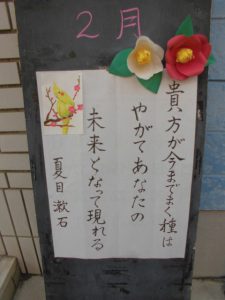 2月
貴方が今までまく種は
やがてあなたの
未来となって現れる
夏目漱石